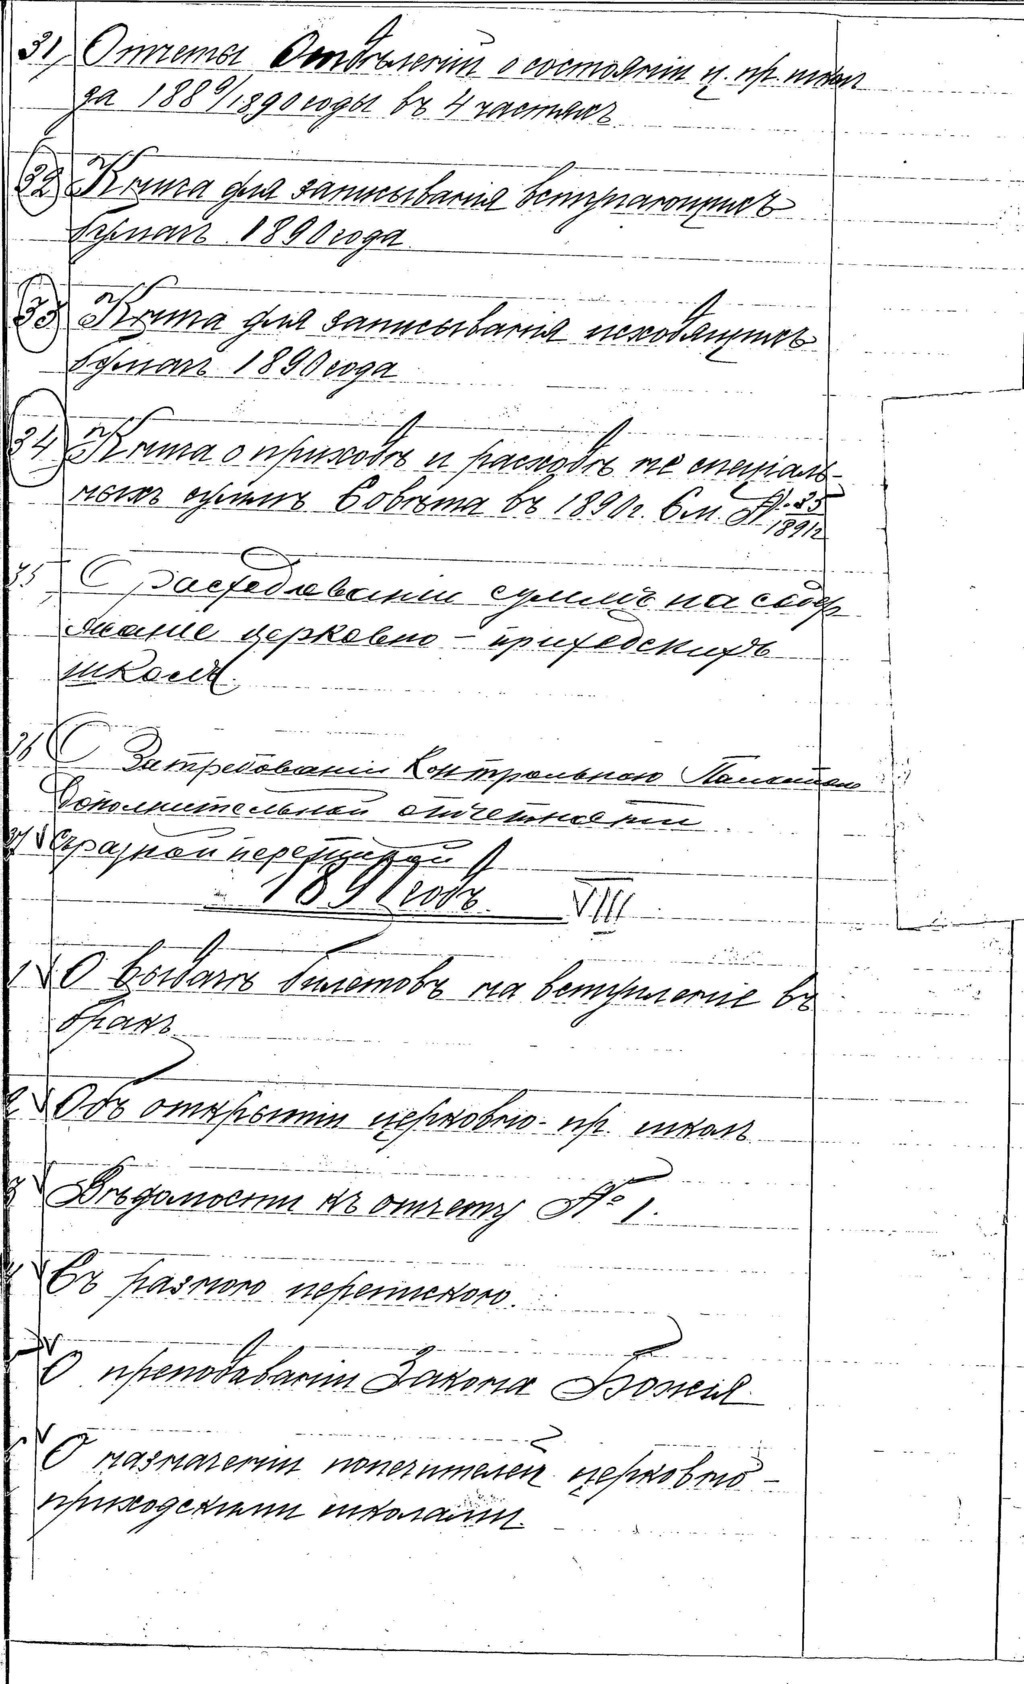 31) Отчеты Отдѣленій о состояніи ц. пр. школ
за 1889/1890 годы въ 4 частяхъ
32 Книга для записыванія вступающихъ
бумагъ 1890 года
33 Книга для записыванія исходящихъ
бумагъ 1890 года
34 Книга о приходѣ и расходѣ не спеціаль-
ныхъ суммъ Совѣта въ 1890 г. См. № 25
1891 г.
35 О расходованіи суммъ на содер
жаніе церковно-приходскихъ
школъ.
36 О Затребованіи Контрольною Палатою
дополнительной отчетности
37 V Съ разной перепиской
1891 годъ. VIII
1 V О выдачѣ билетовъ на вступленіе въ
бракъ
2 V Объ открытіи церковно-пр. школъ
3 V Вѣдомости къ отчету № 1.
4 V Съ разною перепискою.
V О преподаваніи Закона Божія
V О назначеніи попечителей церковно-
приходскими школами.